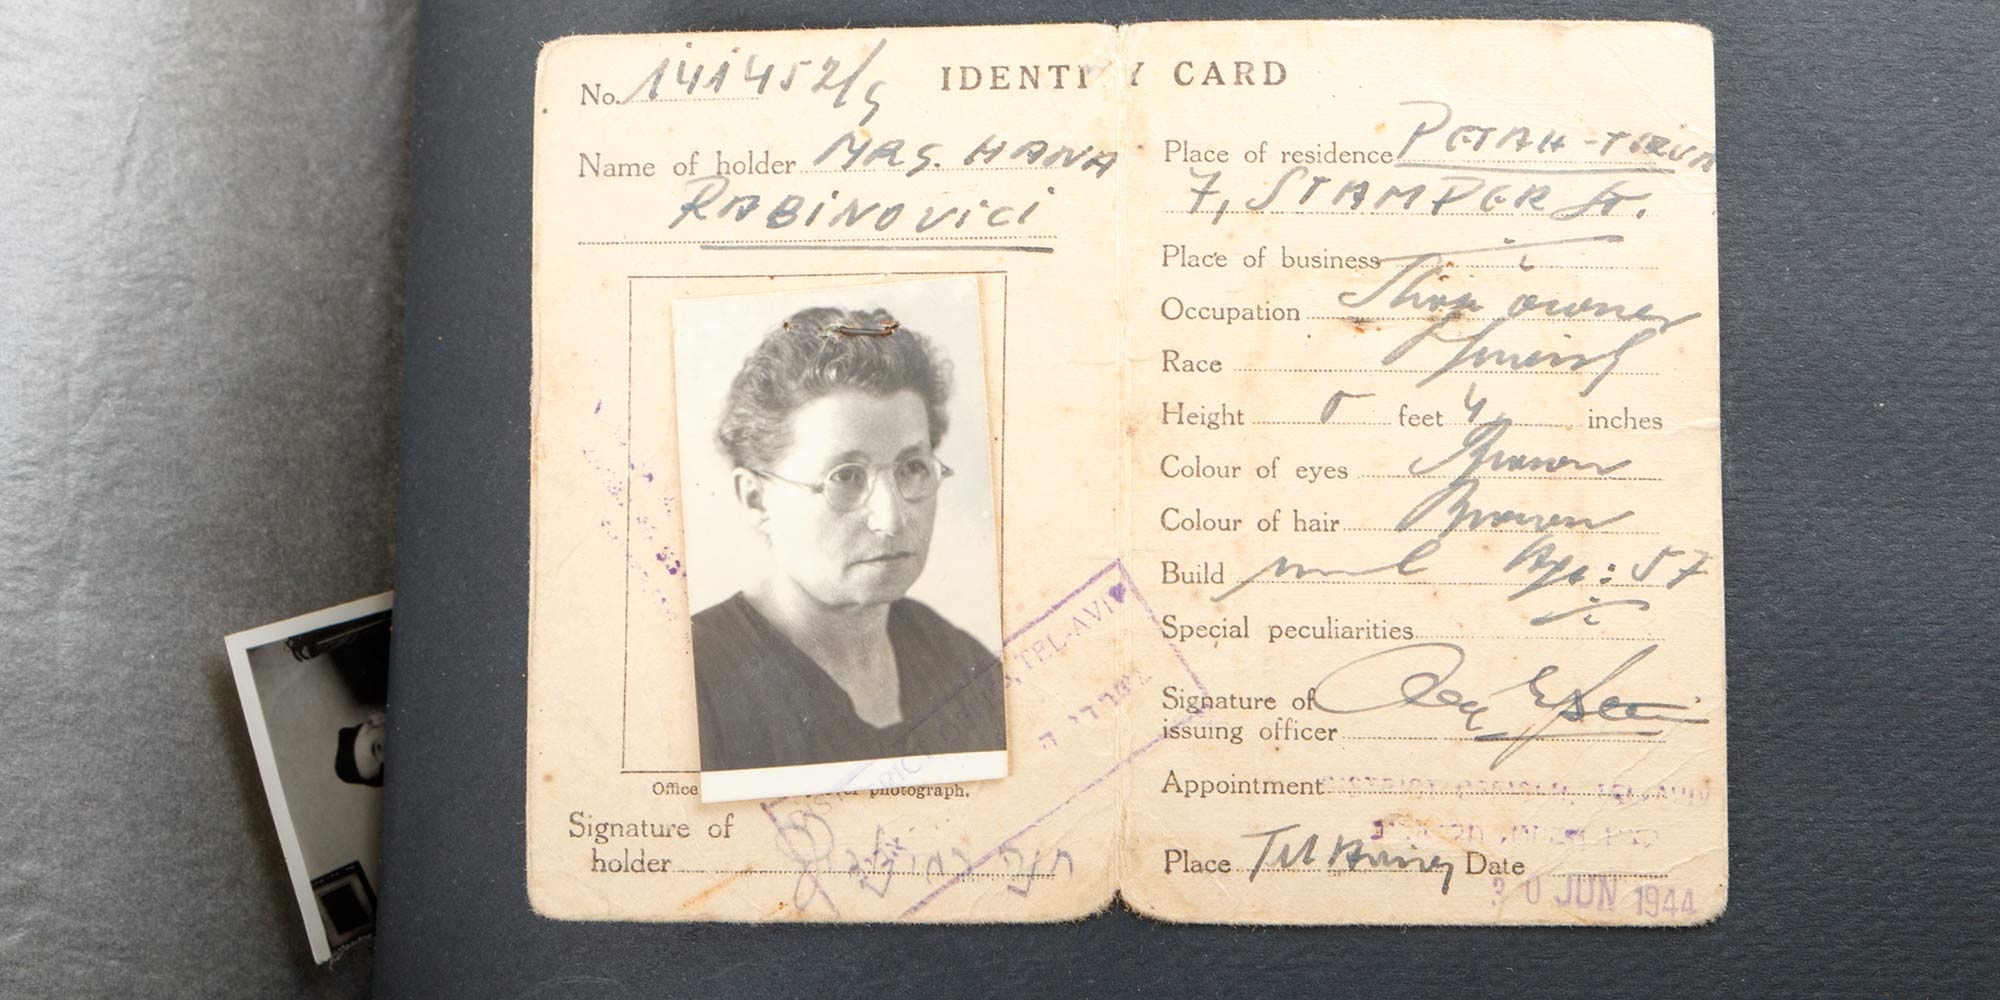 No. 141452/g
IDENTITY CARD
Name of holder MRS. HANA
RABINOVICI
Office
photograph.
Signature of
holder חנה רבינוביץ
DISTRICT OFFICES, TEL-AVIV
Place of residence PETAH-TIKVA
7, STAMPER St.
Place of business
Occupation Shop owner
Race Jewish
Height 5 feet 4 inches
Colour of eyes Brown
Colour of hair Brown
Build Age: 57
Special peculiarities
Signature of
issuing officer
Appointment
Place Tel Aviv Date
30 JUN 1944